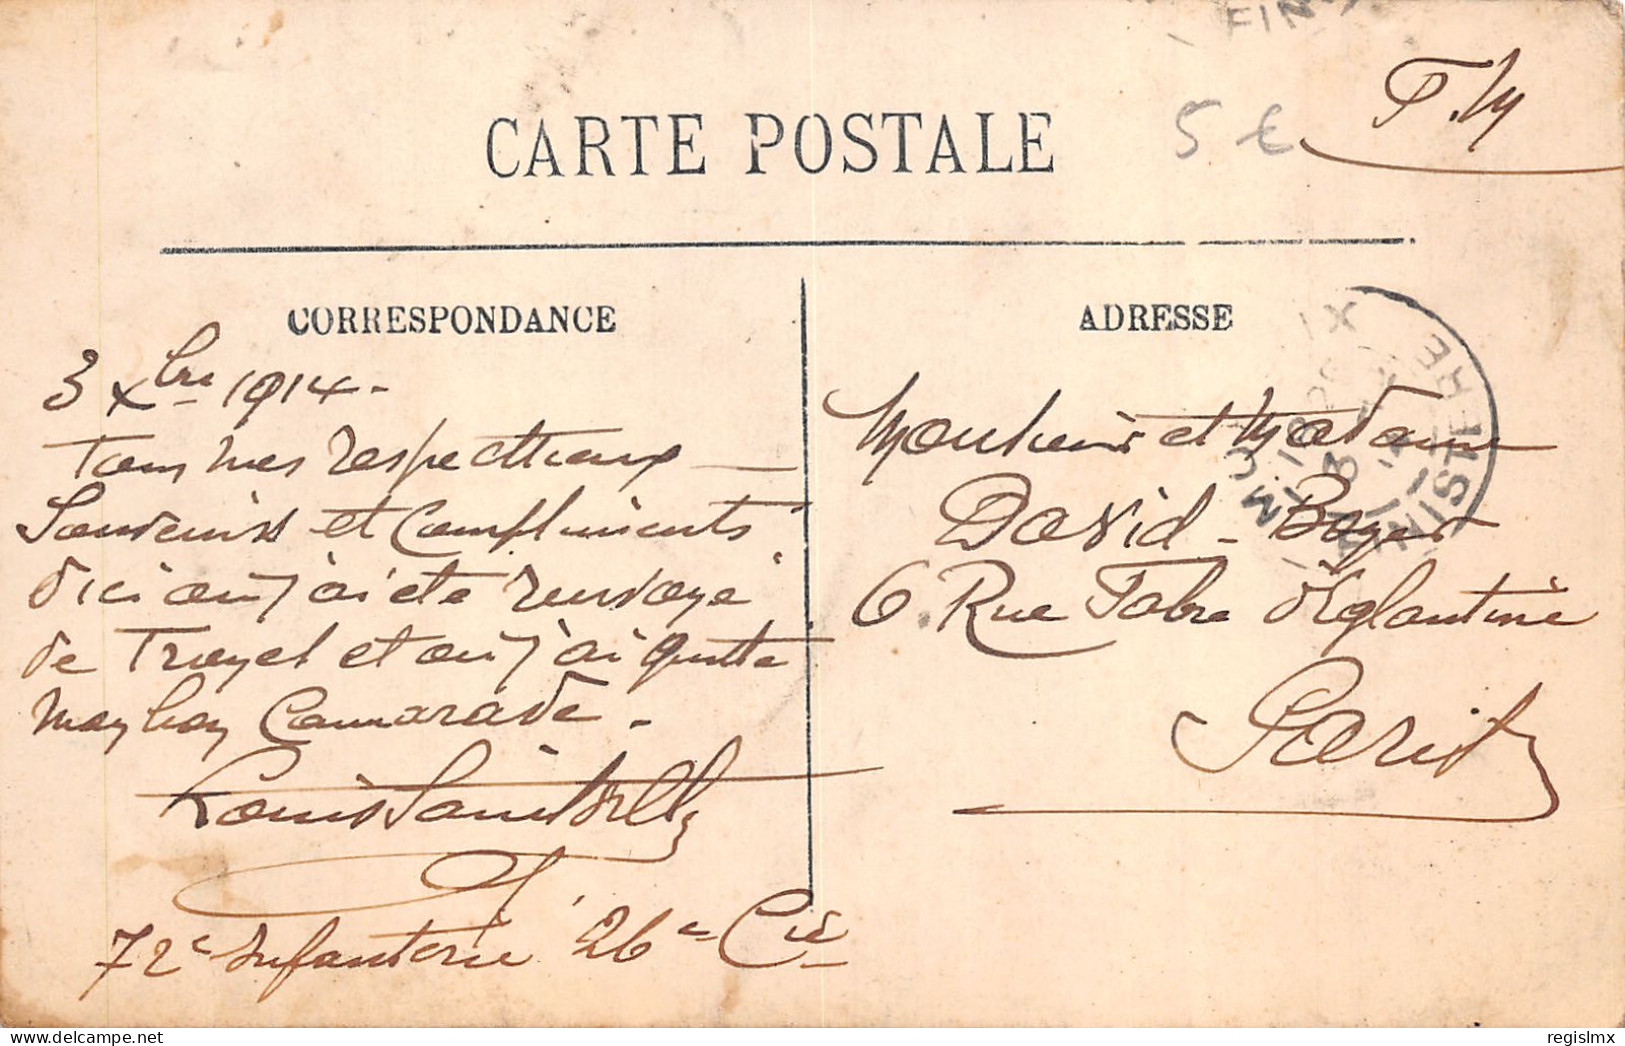 FIN
F. M
5 €
CARTE POSTALE
CORRESPONDANCE
3 Xbre 1914-
Tous mes respectueux
Souvenirs et Compliments
d'ici où j'ai été renvoyé
de Troyes et où j'ai quitté
mon bon Camarade.
Louis
72e Infanterie 26e Cie
ADRESSE
Monsieur et Madame
David-Boyer
6. Rue Fabre d'Eglantine
Paris
FINISTERE
regislmx